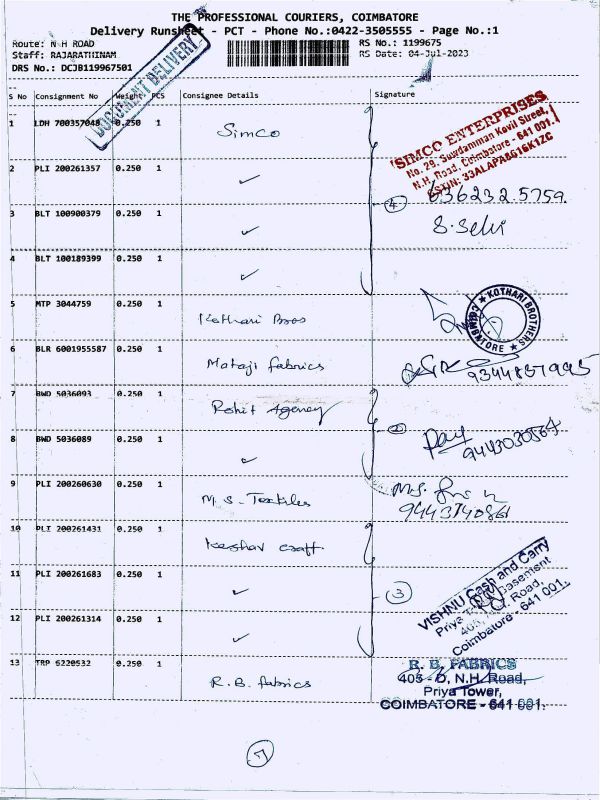 THE PROFESSIONAL COURIERS, COIMBATORE
Delivery Runsheet - PCT - Phone No.:0422-3505555 - Page No.:1
Route: N H ROAD
Staff: RAJARATHINAM
DRS No.: DCJB119967501
RS No.: 1199675
RS Date: 04-Jul-2023
DOCUMENT DELIVERY
S No Consignment No Weight PCS Consignee Details Signature
1 LDH 700357048 0.250 1 Simco
SIMCO ENTERPRISES
No. 29, Suyadamman Kovil Street,
N.H. Road, Coimbatore - 641 001.
GSTIN: 33ALAPA8616K1ZC
2 PLI 200261357 0.250 1 ✓
④ 636232.5759.
3 BLT 100900379 0.250 1 ✓
S. Selvi
4 BLT 100189399 0.250 1 ✓
5 MTP 3044759 0.250 1 Kothari Bros
KOTHARI BROTHERS
COIMBATORE
6 BLR 6001955587 0.250 1 Mataji fabrics
9344837995
7 BWD 5036093 0.250 1 Rohit Agency
②
9443030564
8 BWD 5036089 0.250 1 ✓
9 PLI 200260630 0.250 1 M.S. Textiles
M.S.
9443740861
10 PLI 200261431 0.250 1 Keshav craft.
11 PLI 200261683 0.250 1 ✓
③
VISHNU Cash and Carry
Priya Basement
405, Road,
Coimbatore - 641 001.
12 PLI 200261314 0.250 1 ✓
13 TRP 6220532 0.250 1 R.B. fabrics
R. B. FABRICS
405 - D, N.H. Road,
Priya Tower,
COIMBATORE - 641 001.